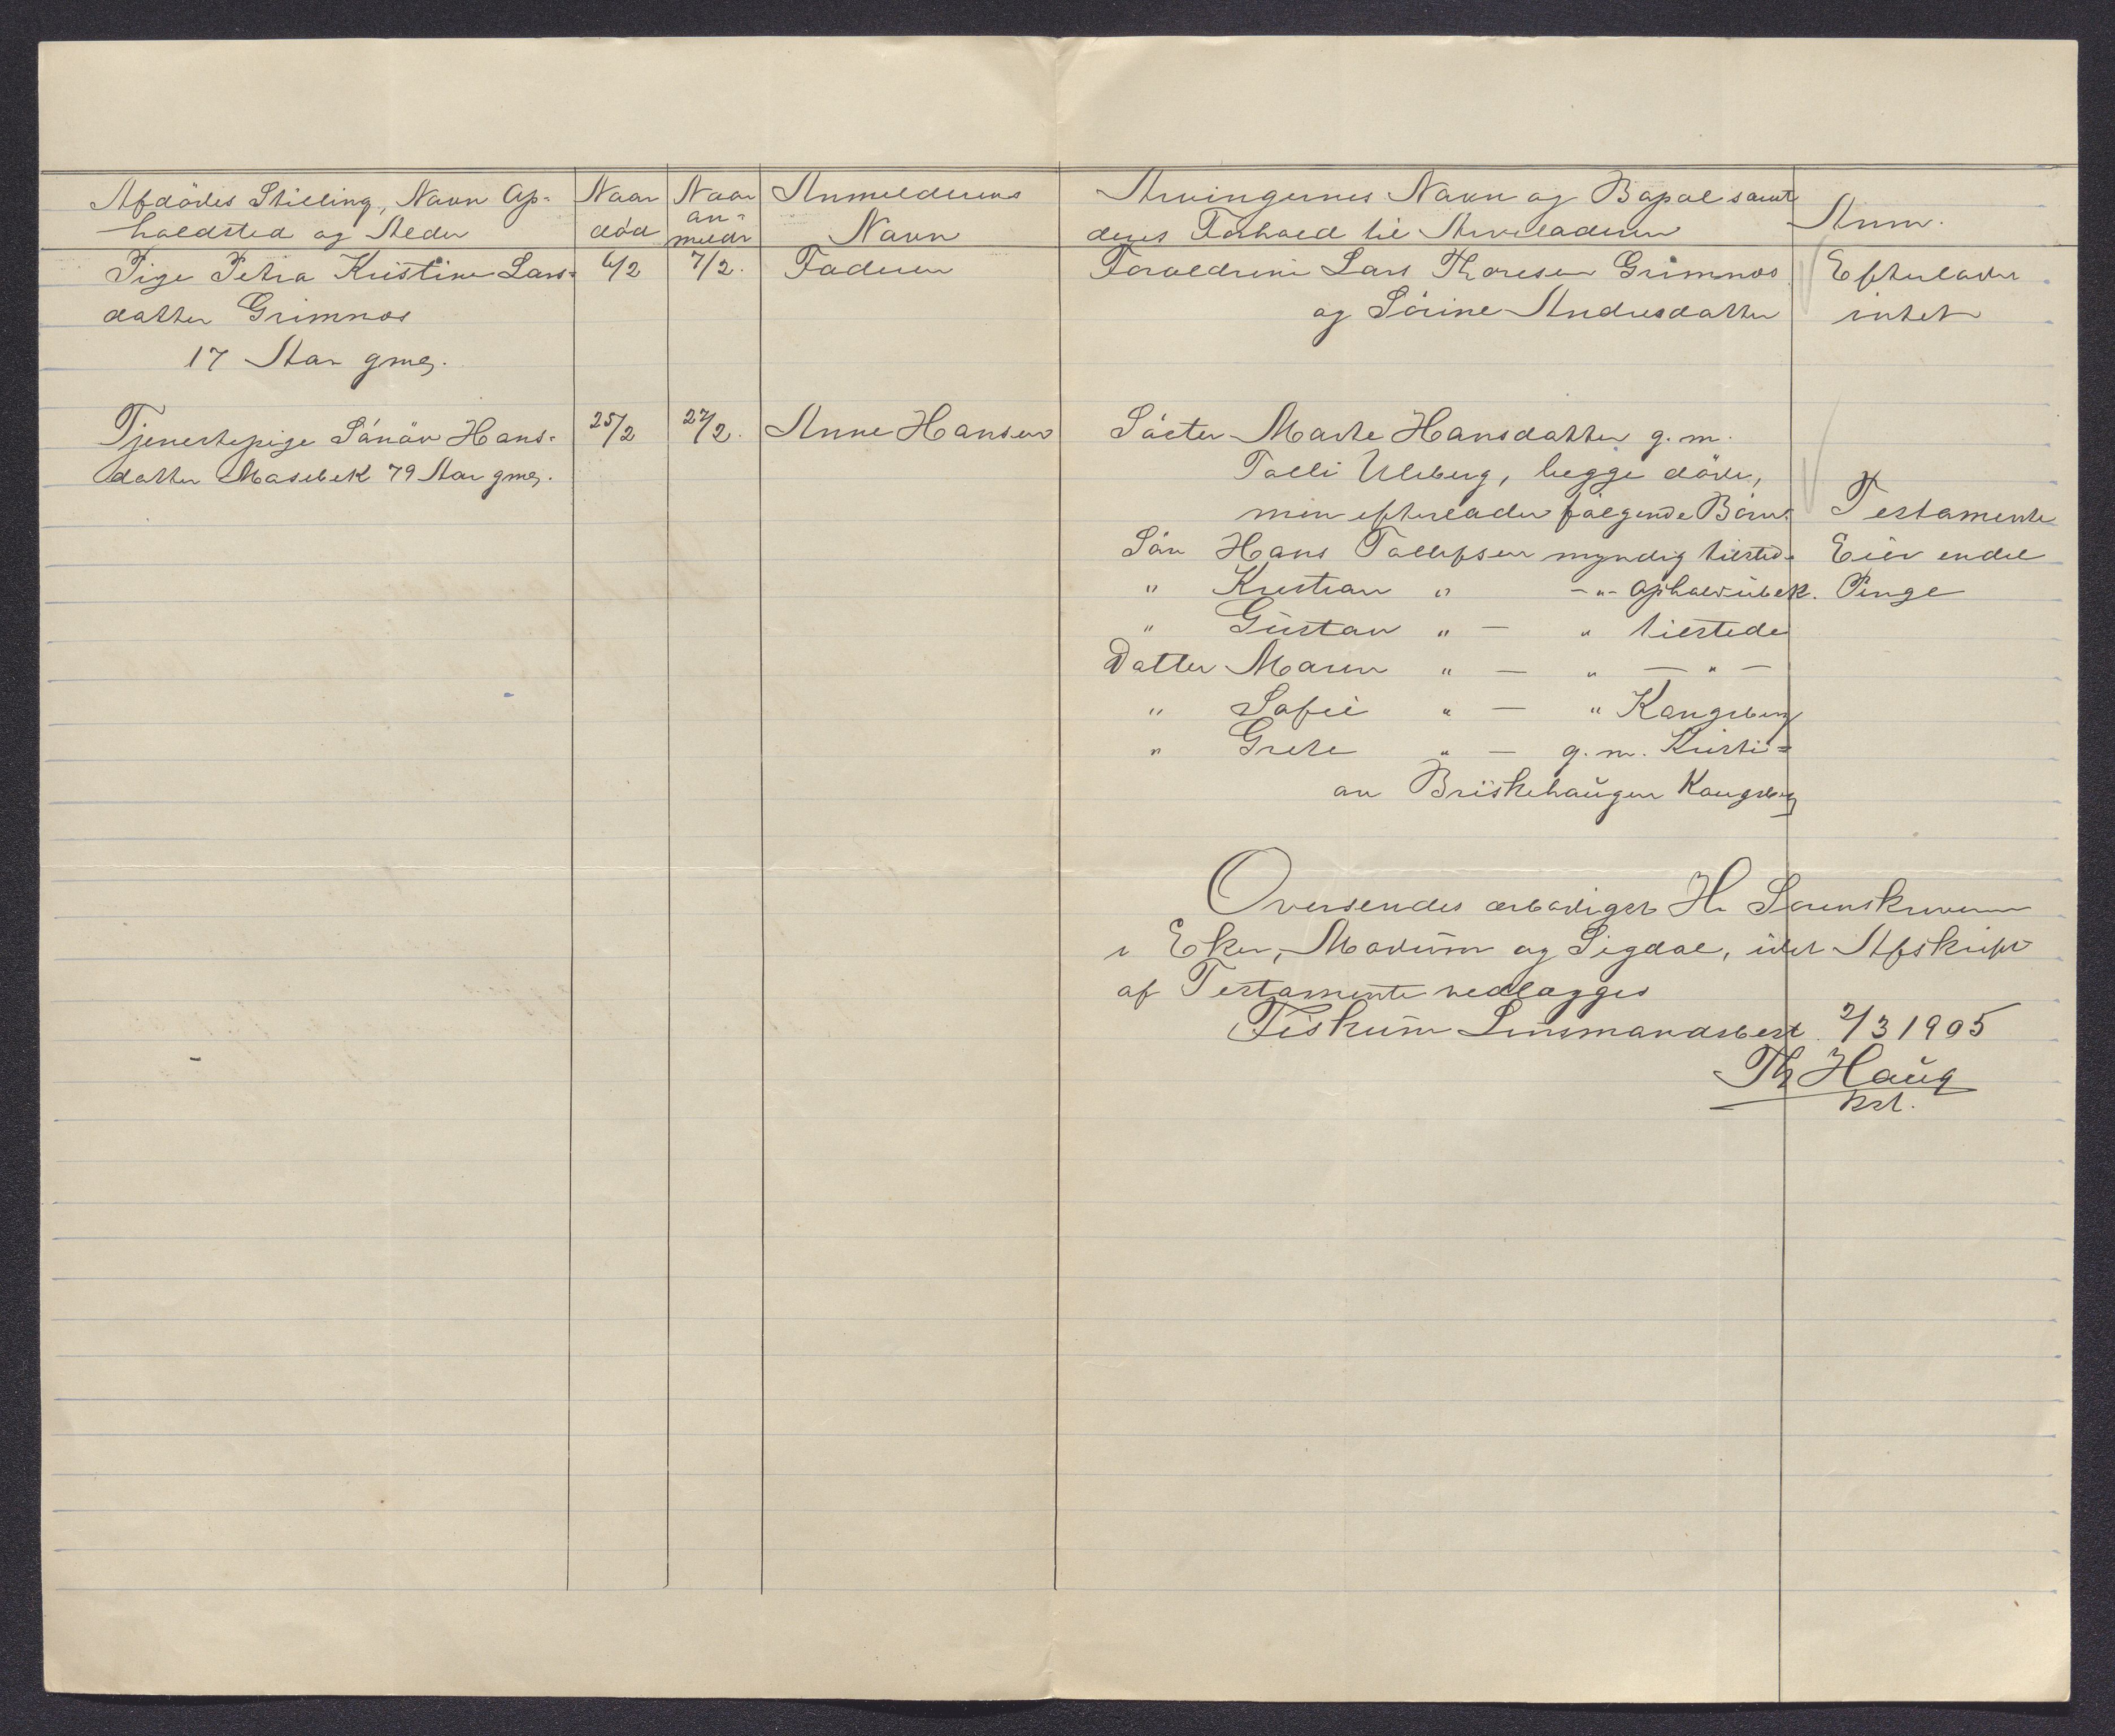 Afdödes Stilling, Navn Op-
holdsted og Alder
Naar
död
Naar
an-
meldt
Anmelderens
Navn
Arvingernes Navn og Bopæl samt
deres Forhold til Arveladeren
Anm.
Pige Petra Kristine Lars-
datter Grimnos
17 Aar gml.
6/2
7/2.
Faderen
Forældrene Lars Thoresen Grimnos
og Sörine Andresdatter
Efterlader
intet
Tjenestepige Sönöv Hans-
datter Mosebek 79 Aar gml.
25/2
27/2.
Anne Hansen
Söster Marte Hansdatter g. m.
Tolli Ulsberg, begge döde,
men efterlader fölgende Börn:
Sön Hans Tollefsen myndig tilstede
" Kristian " -"- Ophold übek.
" Güstav " — " tilstede
Datter Maren " — " — " —
" Sofie " — " Kongsberg
" Grete " — g. m. Kristi-
an Briskehaŭgen Kongsberg
Testamente
Eier endel
Penge
Oversendes ærbödigst Hr. Sorenskriveren
i Eker, Modŭm og Sigdal, idet Afskrift
af Testamente vedlægges
Fiskŭm Lensmandsbest. 2/3 1905
Th Haŭg
kst.